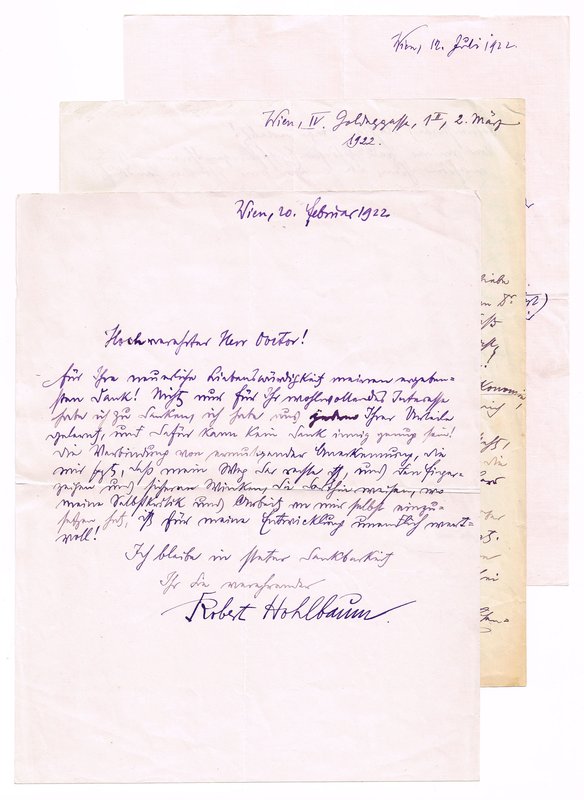 Wien, 12. Juli 1922.
Wien, IV. Goldeggasse, 1 II, 2. März
1922.
Wien, 20. Februar 1922.
Hochverehrter Herr Doctor!
Für Ihre neuerliche Liebenswürdigkeit meinen ergeben-
sten Dank! Nicht nur für Ihr wohlwollendes Interesse
habe ich zu danken, ich habe aus jedem Ihrer Urteile
gelernt, und dafür kann kein Dank innig genug sein!
Die Verbindung von ermutigender Anerkennung, die
mir sagt, daß mein Weg der rechte ist, und den Finger-
zeigen und sicheren Winken, die dorthin weisen, wo
meine Selbstkritik und Arbeit an mir selbst einzu-
setzen hat, ist für meine Entwicklung unendlich wert-
voll!
Ich bleibe in steter Dankbarkeit
Ihr Sie verehrender
Robert Hohlbaum.